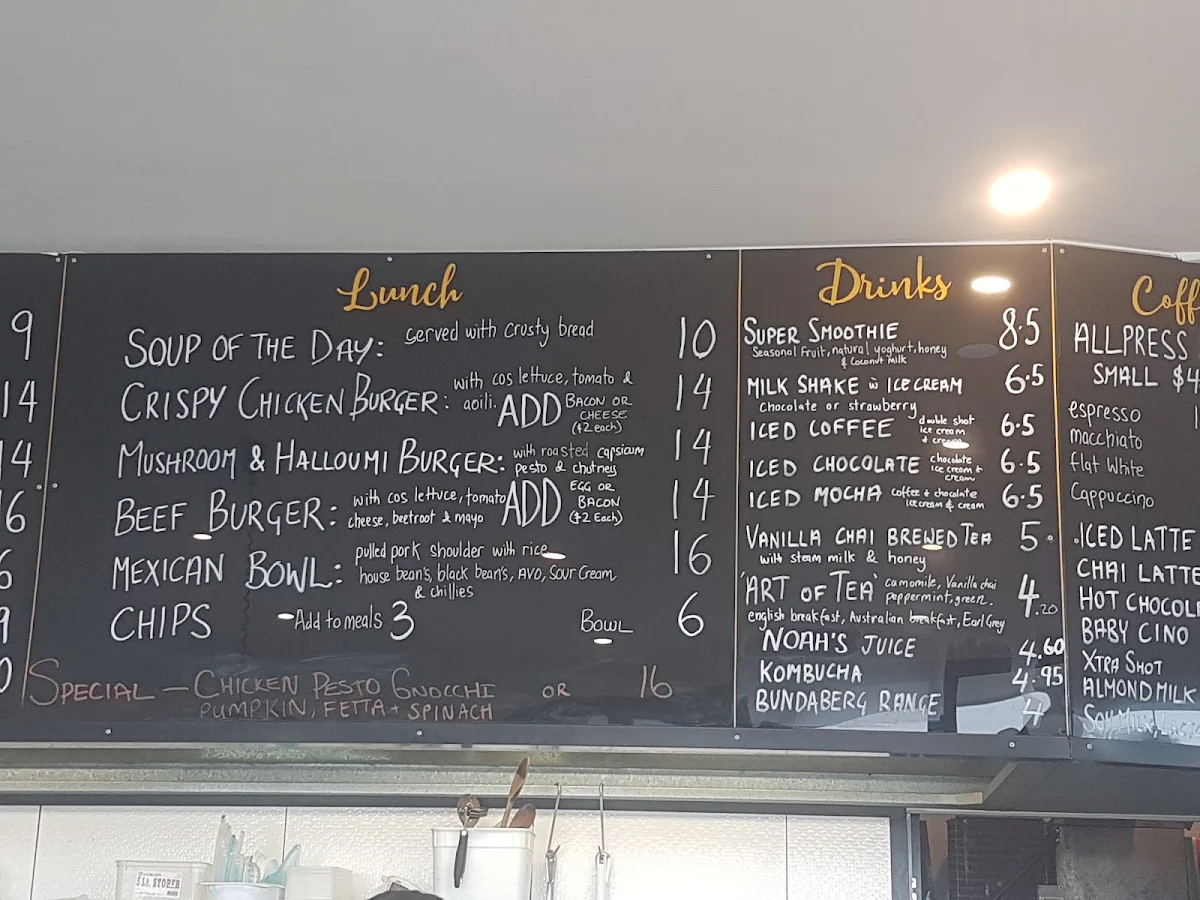 9
14
14
16
6
9
0
Lunch
SOUP OF THE DAY: served with crusty bread 10
CRISPY CHICKEN BURGER: with cos lettuce, tomato & 14
aoili. ADD BACON OR
CHEESE
($2 each)
MUSHROOM & HALLOUMI BURGER: with roasted capsicum 14
pesto & chutney
BEEF BURGER: with cos lettuce, tomato ADD EGG OR 14
cheese, beetroot & mayo BACON
($2 Each)
MEXICAN BOWL: pulled pork shoulder with rice 16
house bean's, black bean's, AVO, Sour Cream
& chillies
CHIPS Add to meals 3 BOWL 6
SPECIAL — CHICKEN PESTO GNOCCHI OR 16
PUMPKIN, FETTA + SPINACH
Drinks
SUPER SMOOTHIE 8.5
Seasonal Fruit, natural yoghurt, honey
& Coconut milk
MILK SHAKE w ICE CREAM 6.5
chocolate or strawberry
ICED COFFEE double shot 6.5
ice cream
& cream
ICED CHOCOLATE chocolate 6.5
ice cream +
cream
ICED MOCHA coffee + chocolate 6.5
ice cream & cream
VANILLA CHAI BREWED TEA 5.
with steam milk & honey
'ART OF TEA' camomile, Vanilla chai 4.20
peppermint, green.
english breakfast, Australian breakfast, Earl Grey
NOAH'S JUICE 4.60
KOMBUCHA 4.95
BUNDABERG RANGE 4
Coff
ALLPRESS
SMALL $4
espresso
macchiato
flat White
Cappuccino
.ICED LATTE
CHAI LATTE
HOT CHOCOL
BABY CINO
XTRA SHOT
ALMOND MILK
SOY MILK,
5 Lt. STORER